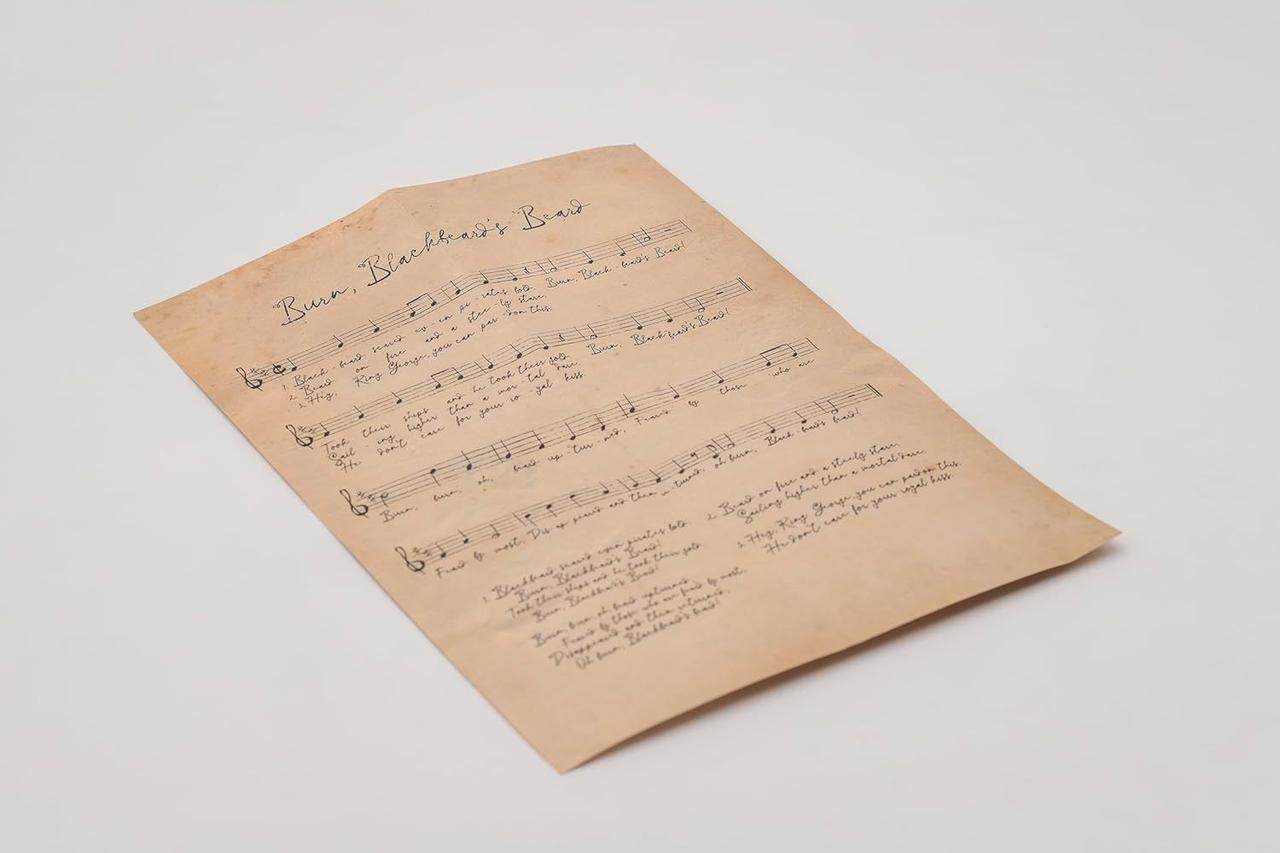 Burn, Blackbeard's Beard
1. Black - beard scared ev - en pi - rates bold. Burn, Black - beard's Beard!
2. Beard on fire and a stee - ly stare.
3. Hey, King George, you can par - don this.
Took their ships and he took their gold. Burn, Blackbeard's Beard!
Sail - ing higher than a mor - tal dare.
He don't care for your ro - yal kiss.
Burn, burn, oh, beard up - tur - ned, Feared by those who are
Feared by most. Dis - ap - peared and then re - turned, oh burn, Black - beard's beard!
1. Blackbeard scared even pirates bold.
Burn, Blackbeard's Beard!
Took their ships and he took their gold.
Burn, Blackbeard's Beard!
Burn, burn, oh beard upturned,
Feared by those who are feared by most.
Disappeared and then returned,
Oh burn, Blackbeard's beard!
2. Beard on fire and a steely stare,
Sailing higher than a mortal dare.
3. Hey, King George, you can pardon this.
He don't care for your royal kiss.